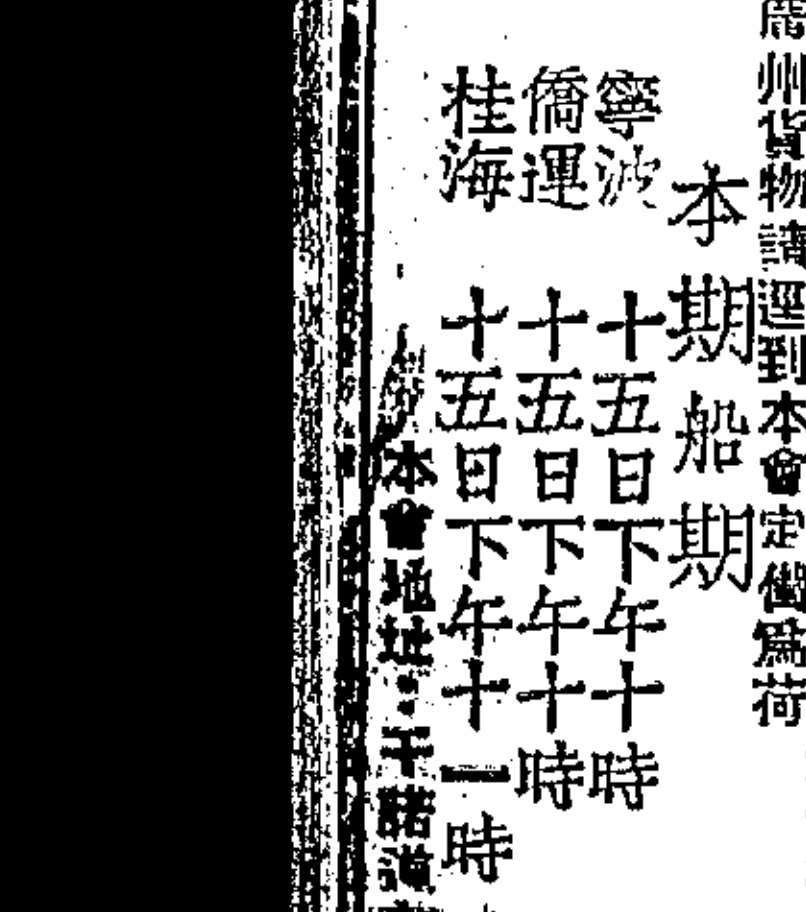 州貨物請運到本會定倉爲荷
本期船期
寧波 十五日下午十時
僑運 十五日下午十時
桂海 十五日下午十一時
本會地址：干諾道